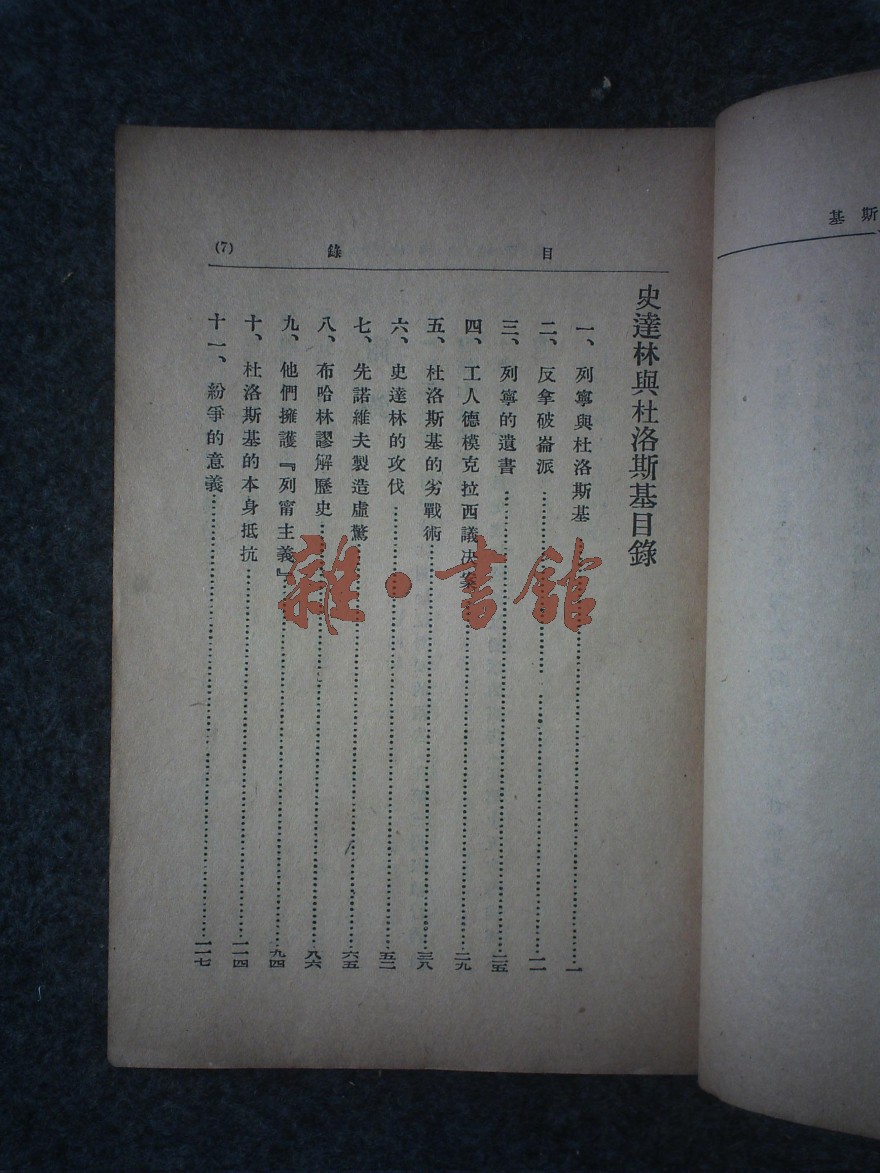 基斯
(7) 錄 目
史達林與杜洛斯基目錄
一、列寧與杜洛斯基……一
二、反拿破崙派……一一
三、列寧的遺書……二五
四、工人德模克拉西議決案……二九
五、杜洛斯基的劣戰術……三八
六、史達林的攻伐……五二
七、先諾維夫製造虛驚……六五
八、布哈林謬解歷史……八六
九、他們擁護『列甯主義』……九四
十、杜洛斯基的本身抵抗……一一四
十一、紛爭的意義……一一七
雜·書館